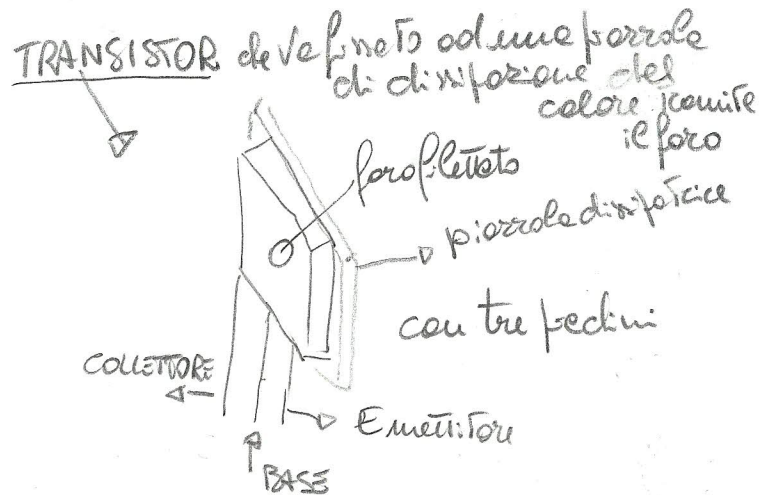 TRANSISTOR va fissato ad una piazzola
di dissipazione del
calore tramite
il foro
foro filettato
piazzola dissipatrice
con tre piedini
COLLETTORE
Emettitore
BASE